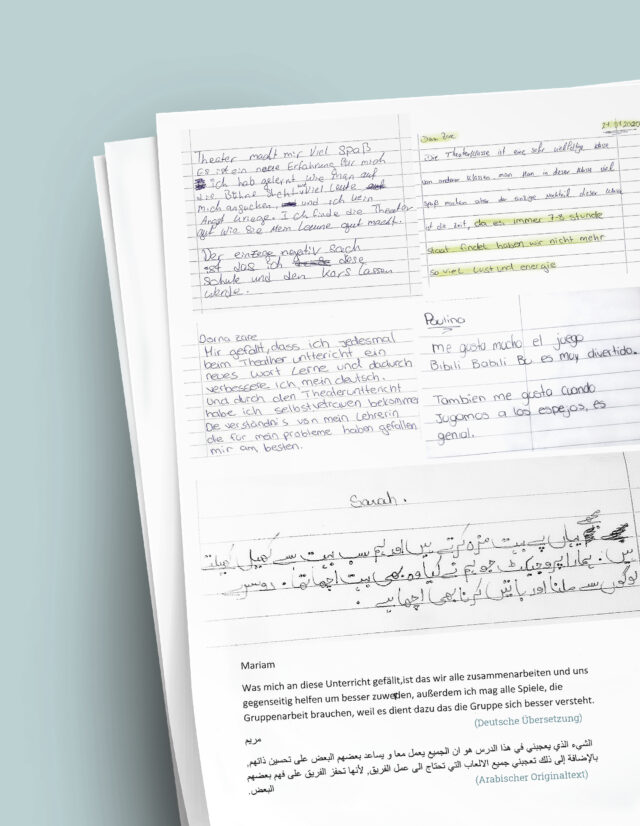 Theater macht mir viel Spaß
Es ist ein neue Erfahrung für mich
ich hab gelernt wie man auf
die Bühne steht und viel Leute
mich angucken, und ich kein
Angst kriege. Ich finde die Theater
gut wie sie mein Laune gut macht.
Der einzege negativ sach
ist das ich dese
schule und den Kors lassen
werde.
21.01.2020
Dorsa Zare
Die Theaterklasse ist eine sehr vielfältige klasse
von anderen klassen. man kann in dieser klasse viel
spaß machen aber der einzige nachteil dieser klasse
ist die zeit, da es immer 7-8 stunde
staat findet haben wir nicht mehr
so viel lust und energie
Dorna zare
Mir gefällt, dass ich jedesmal
beim Theather unttericht ein
neues wort Lerne und dadurch
verbessere ich mein deutsch.
und durch den Theaterunttericht
habe ich selbstvetrauen bekommen
De verständnis von mein Lehrerin
die für mein probleme haben gefallen
mir am besten.
Paulina
Me gusta mucho el juego
Bibili Babili Bu es muy divertido.
Tambien me gusta cuando
Jugamos a los espejos, es
genial.
Sarah.
یہاں پے بہت مزہ کرتے ہیں اور ہم سب بہت سے کھیل کھیلتے
ہیں. ہمارا پروجیکٹ جو ہم نے کیا وہ بھی بہت اچھا تھا. دوسرے
لوگوں سے ملنا اور باتیں کرنا بھی اچھا ہے.
Mariam
Was mich an diese Unterricht gefällt,ist das wir alle zusammenarbeiten und uns
gegenseitig helfen um besser zuwerden, außerdem ich mag alle Spiele, die
Gruppenarbeit brauchen, weil es dient dazu das die Gruppe sich besser versteht.
(Deutsche Übersetzung)
مريم
الشيء الذي يعجبني في هذا الدرس هو ان الجميع يعمل معا و يساعد بعضهم البعض على تحسين ذاتهم,
بالإضافة إلى ذلك تعجبني جميع الالعاب التي تحتاج الى عمل الفريق, لأنها تحفز الفريق على فهم بعضهم
البعض.
(Arabischer Originaltext)